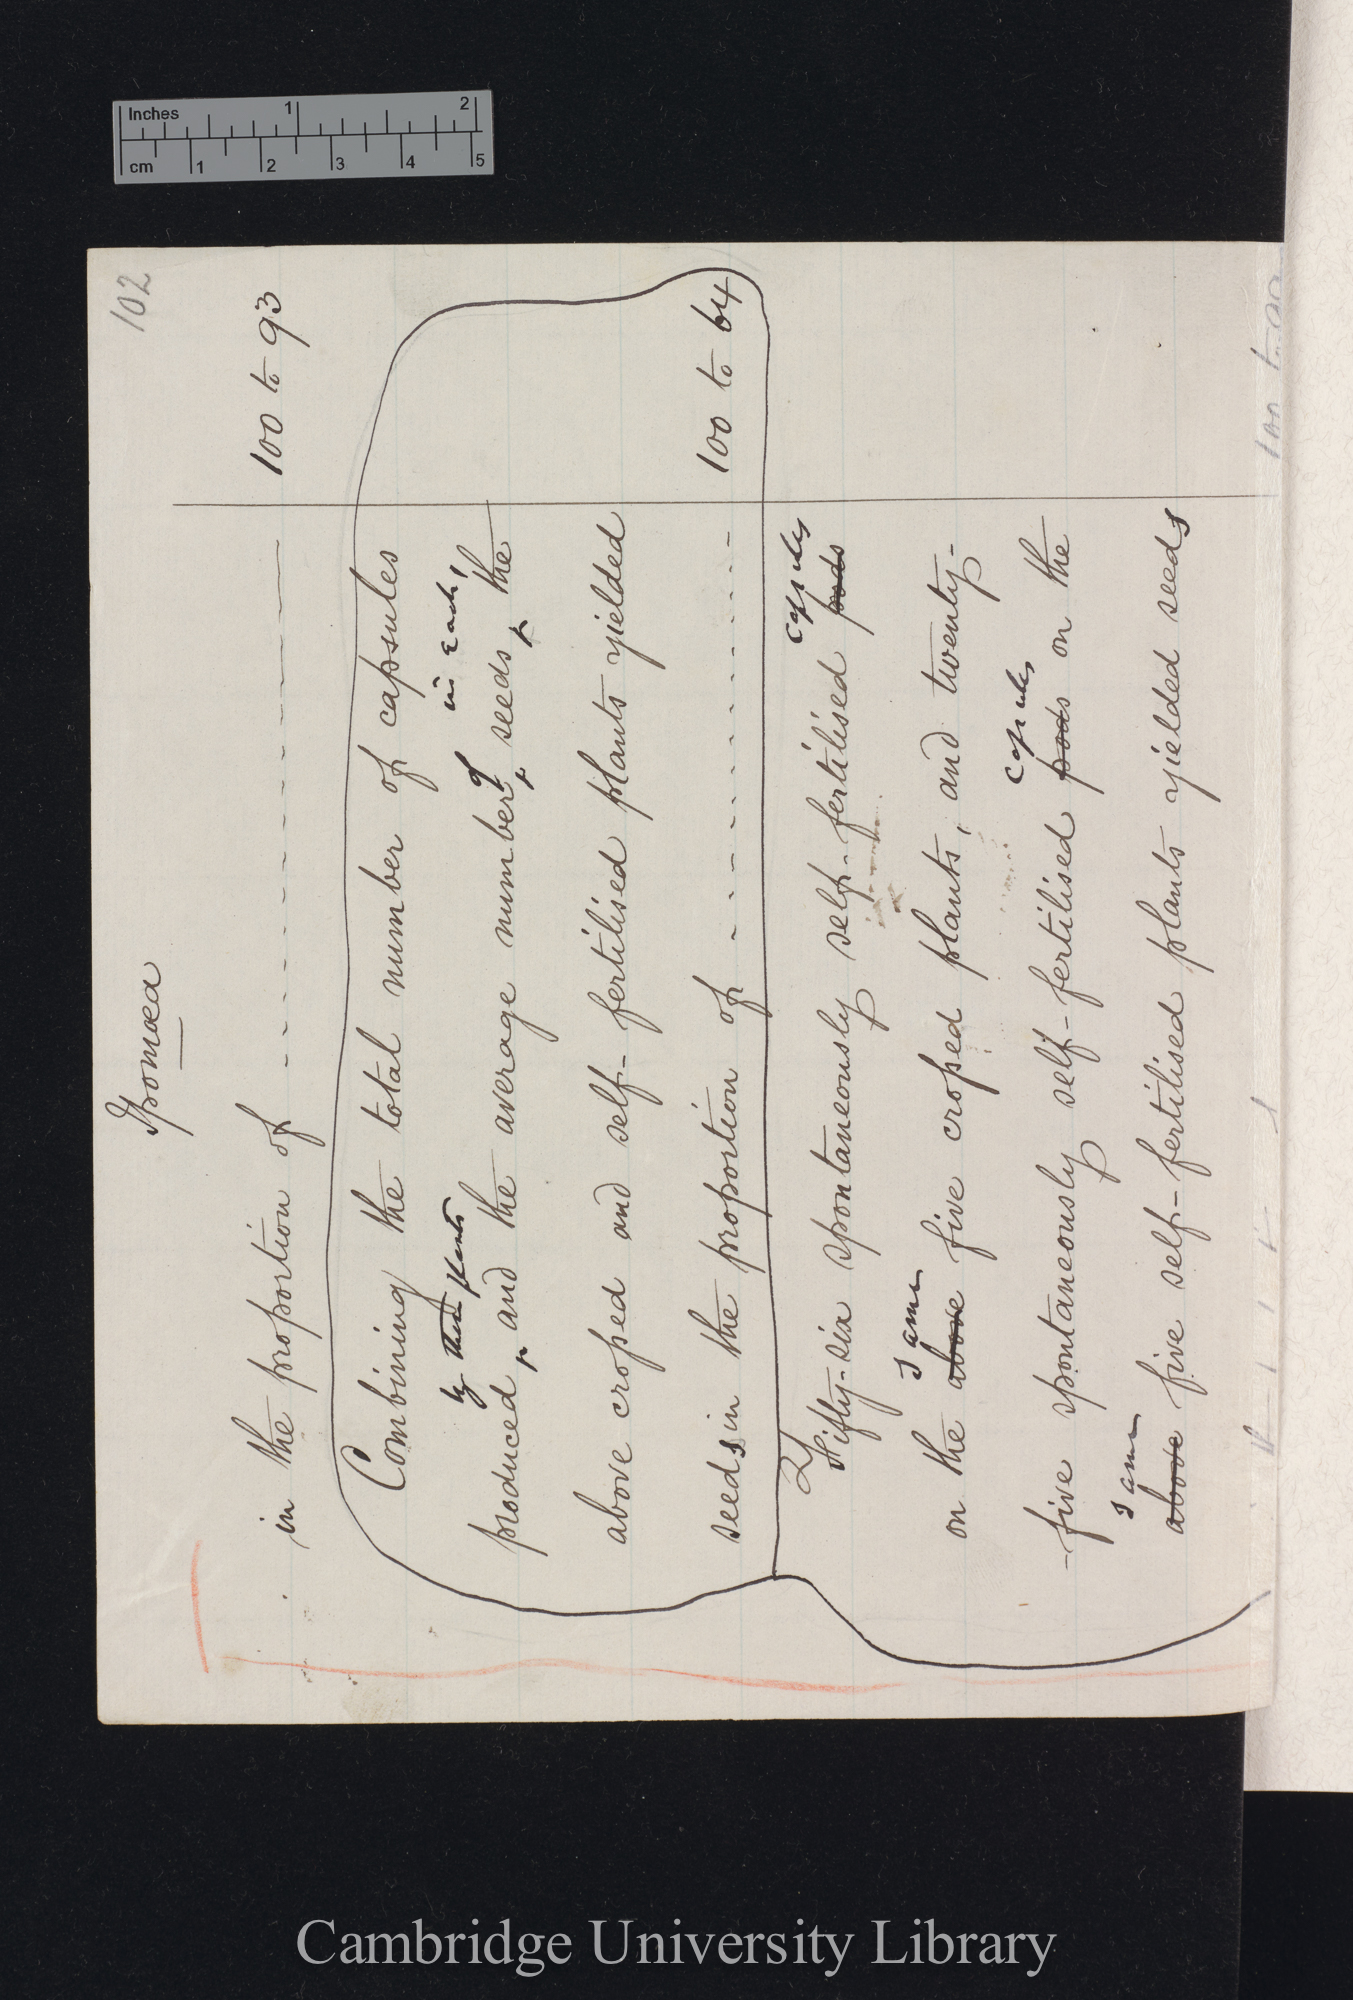 Inches 1 2
cm 1 2 3 4 5
102
Ipomœa
in the proportion of - - - - - - - 100 to 93
Combining the total number of capsules
by these plants in each,
produced and the average number of seeds the
above crossed and self-fertilised plants yielded
seeds in the proportion of - - - - - - - 100 to 64
capsules
Fifty-six spontaneously self-fertilised pods
same
on the above five crossed plants, and twenty-
capsules
-five spontaneously self-fertilised pods on the
same
above five self-fertilised plants yielded seeds
Cambridge University Library